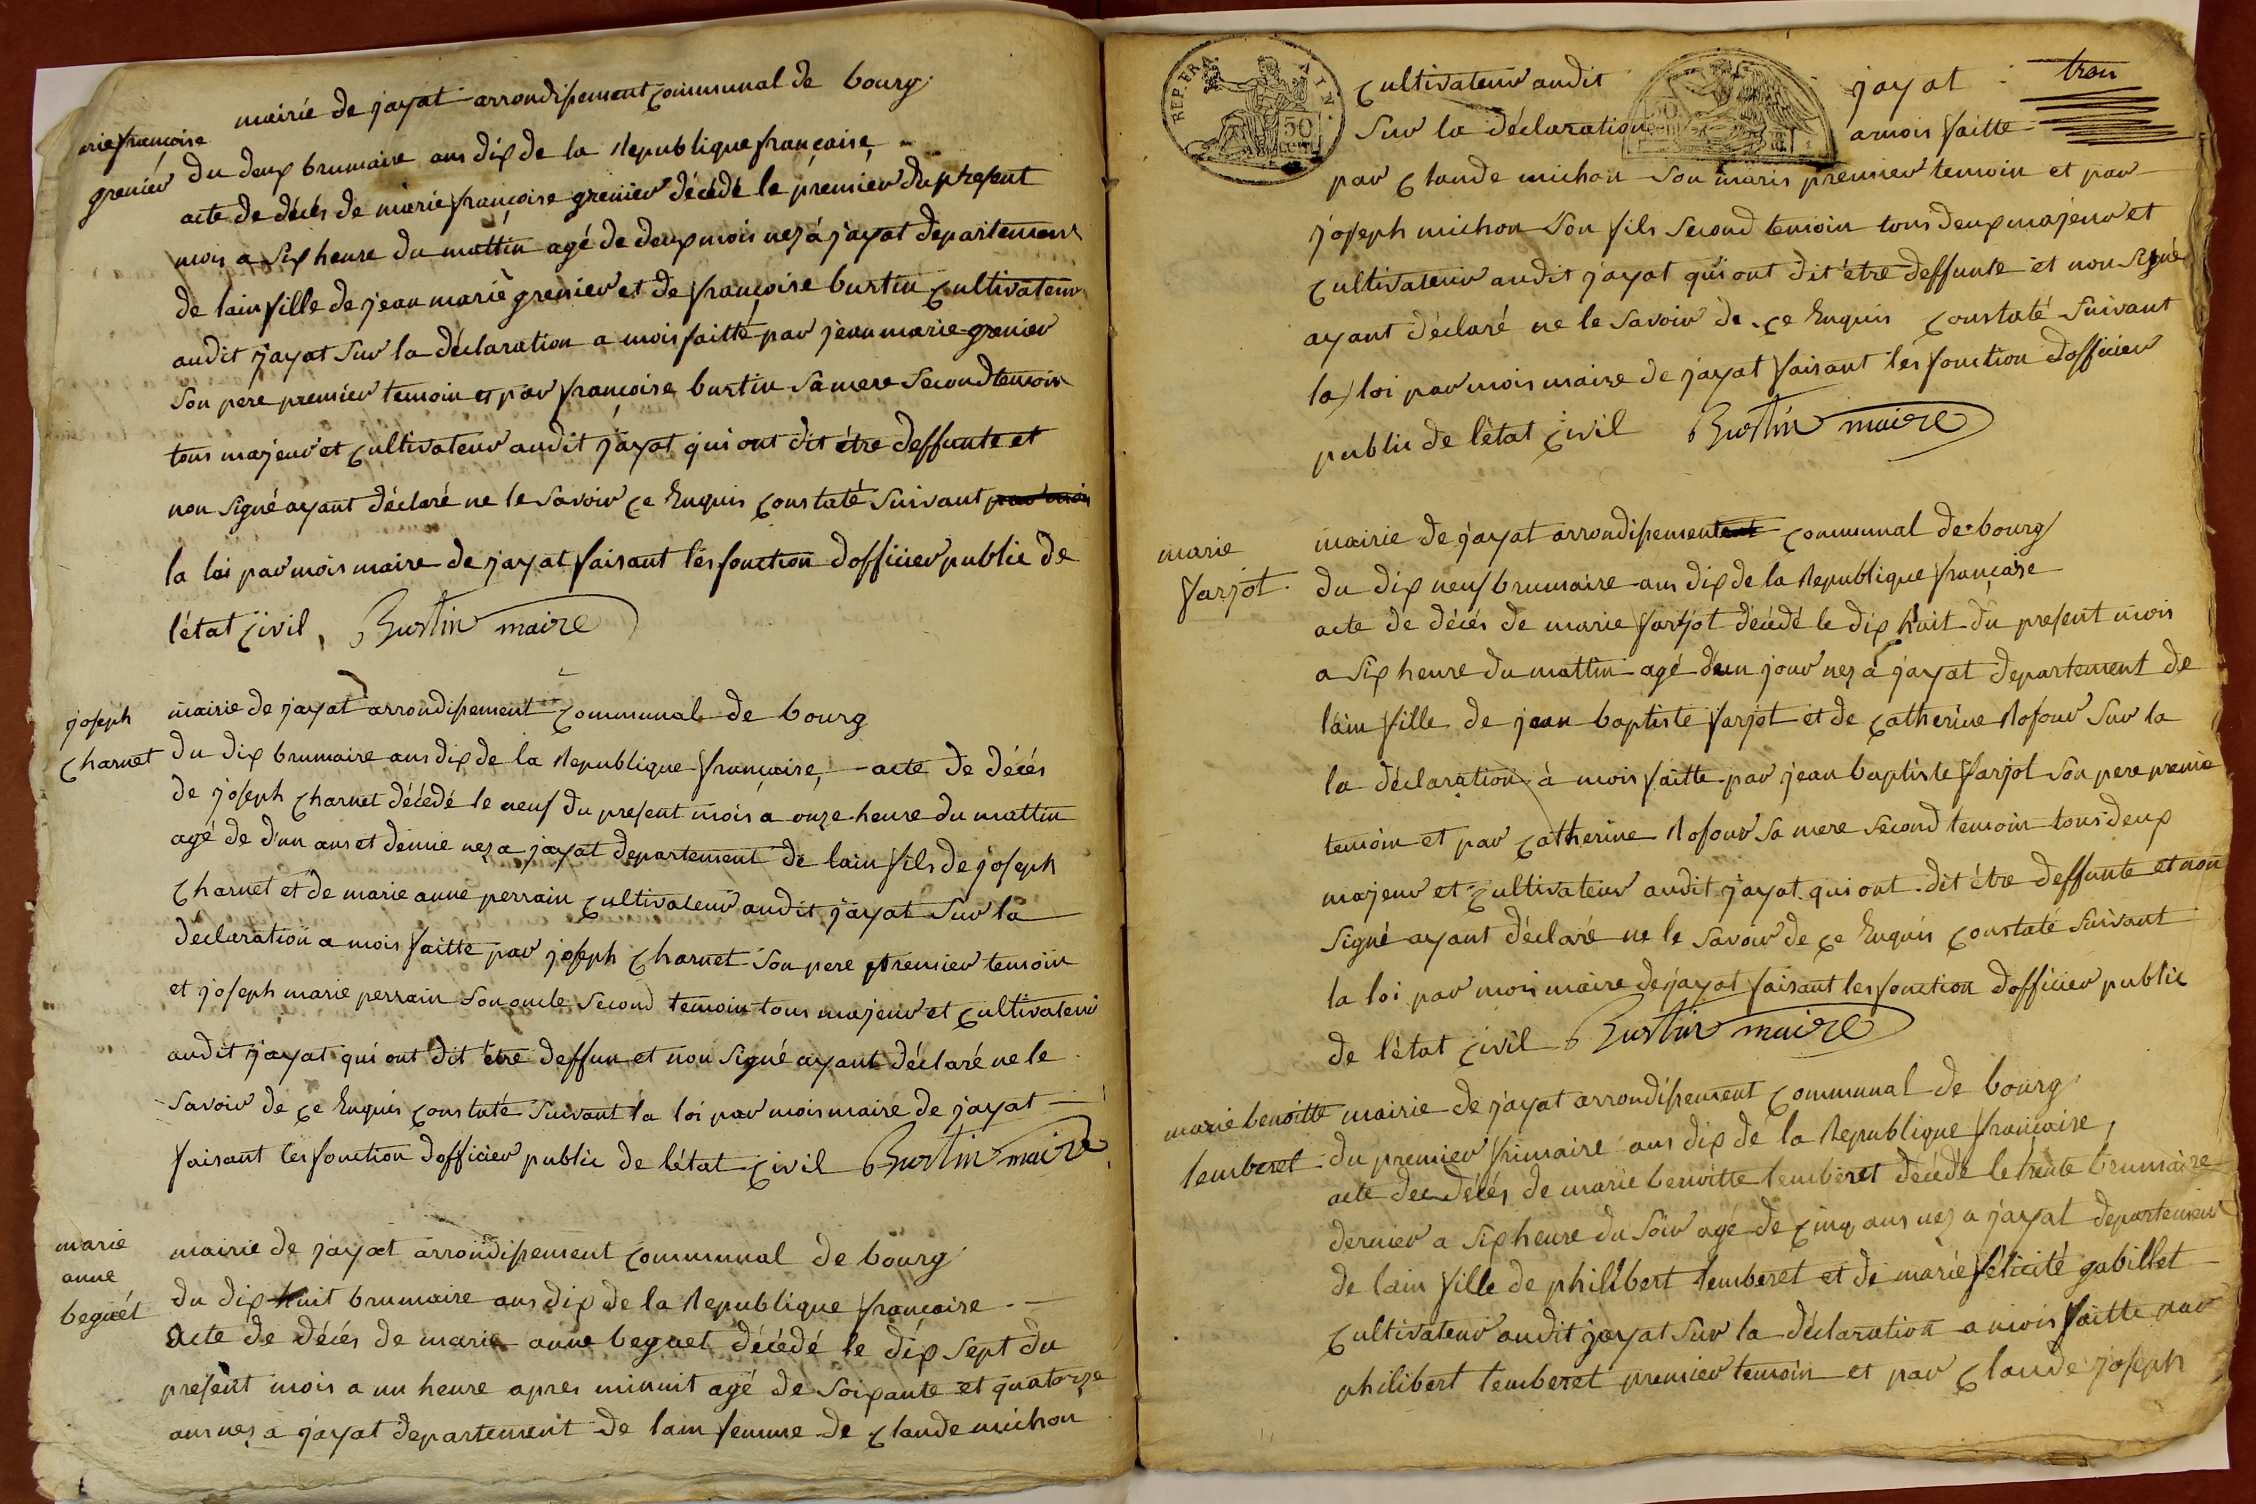 mairie de jayat arrondissement communal de bourg
françoise
grenier
du deux brumaire ans dix de la Republique française
acte de décés de marie françoise grenier décédé le premier du present
mois a six heure du mattin agé de deux mois nez á jayat departement
de lain fille de jean marie grenier et de françoise burtin cultivateur
audit jayat sur la déclaration a mois faitte par jean marie grenier
son pere premier temoin et par françoise burtin sa mere second temoin
tous majeur et cultivateur audit jayat qui ont dit étre deffunte et
non signé ayant déclaré ne le savoir ce Enquis constaté suivant par moi
la loi par mois maire de jayat faisant les fonction dofficier public de
létat civil, Burtin maire
joseph
charnet
mairie de jayat arrondissement communal de bourg
du dix brumaire ans dix de la Republique française, acte de décés
de joseph charnet décédé le neuf du present mois a onze heure du mattin
agé de d'un ans et demie nez a jayat departement de lain fils de joseph
charnet et de marie anne perrain cultivateur audit jayat sur la
déclaration a mois faitte par joseph charnet son pere premier temoin
et joseph marie perrain son oncle second temoin tous majeur et cultivateur
audit jayat qui ont dit étre deffun et non signé ayant déclaré ne le
savoir de ce Enquis constaté suivant la loi par mois maire de jayat
faisant les fonction dofficier public de létat civil Burtin maire
marie
anne
beguét
mairie de jayat arrondissement communal de bourg
du dix huit brumaire ans dix de la Republique française
acte de décés de marie anne beguet décédé le dix sept du
present mois a un heure apres minuit agé de soixante et quatorze
ans nez a jayat departement de lain femme de claude michon
REP. FRA.
50
cultivateur audit jayat
sur la déclaration a mois faitte
par claude michon son maris premier temoin et par
joseph michon son fils second temoin tous deux majeur et
cultivateur audit jayat qui ont dit étre deffunte et non signé
ayant déclaré ne le savoir de ce Enquis constaté suivant
la loi par mois maire de jayat faisant les fonction dofficier
public de létat civil Burtin maire
marie
farjot
mairie de jayat arrondissement communal de bourg
du dix neuf brumaire ans dix de la Republique française
acte de décés de marie farjot décédé le dix huit du present mois
a six heure du mattin agé d'un jour nez a jayat departement de
lain fille de jean baptiste farjot et de catherine Rofour sur la
la déclaration à mois faitte par jean baptiste farjot son pere premie
temoin et par catherine Rofour sa mere second temoin tous deux
majeur et cultivateur audit jayat qui ont dit étre deffunte et non
signé ayant déclaré ne le savoir de ce Enquis constaté suivant
la loi par mois maire de jayat faisant les fonction dofficier public
de létat civil Burtin maire
marie benoitte
temberet
mairie de jayat arrondissement communal de bourg
du premier frimaire ans dix de la Republique française,
acte de décés de marie benoitte temberet décédé le trente brumaire
dernier a six heure du soir agé de cinq ans nez a jayat departement
de lain fille de philibert temberet et de marie félicité gabillet
cultivateur audit jayat sur la déclaration a mois faitte par
philibert temberet premier temoin et par claude joseph